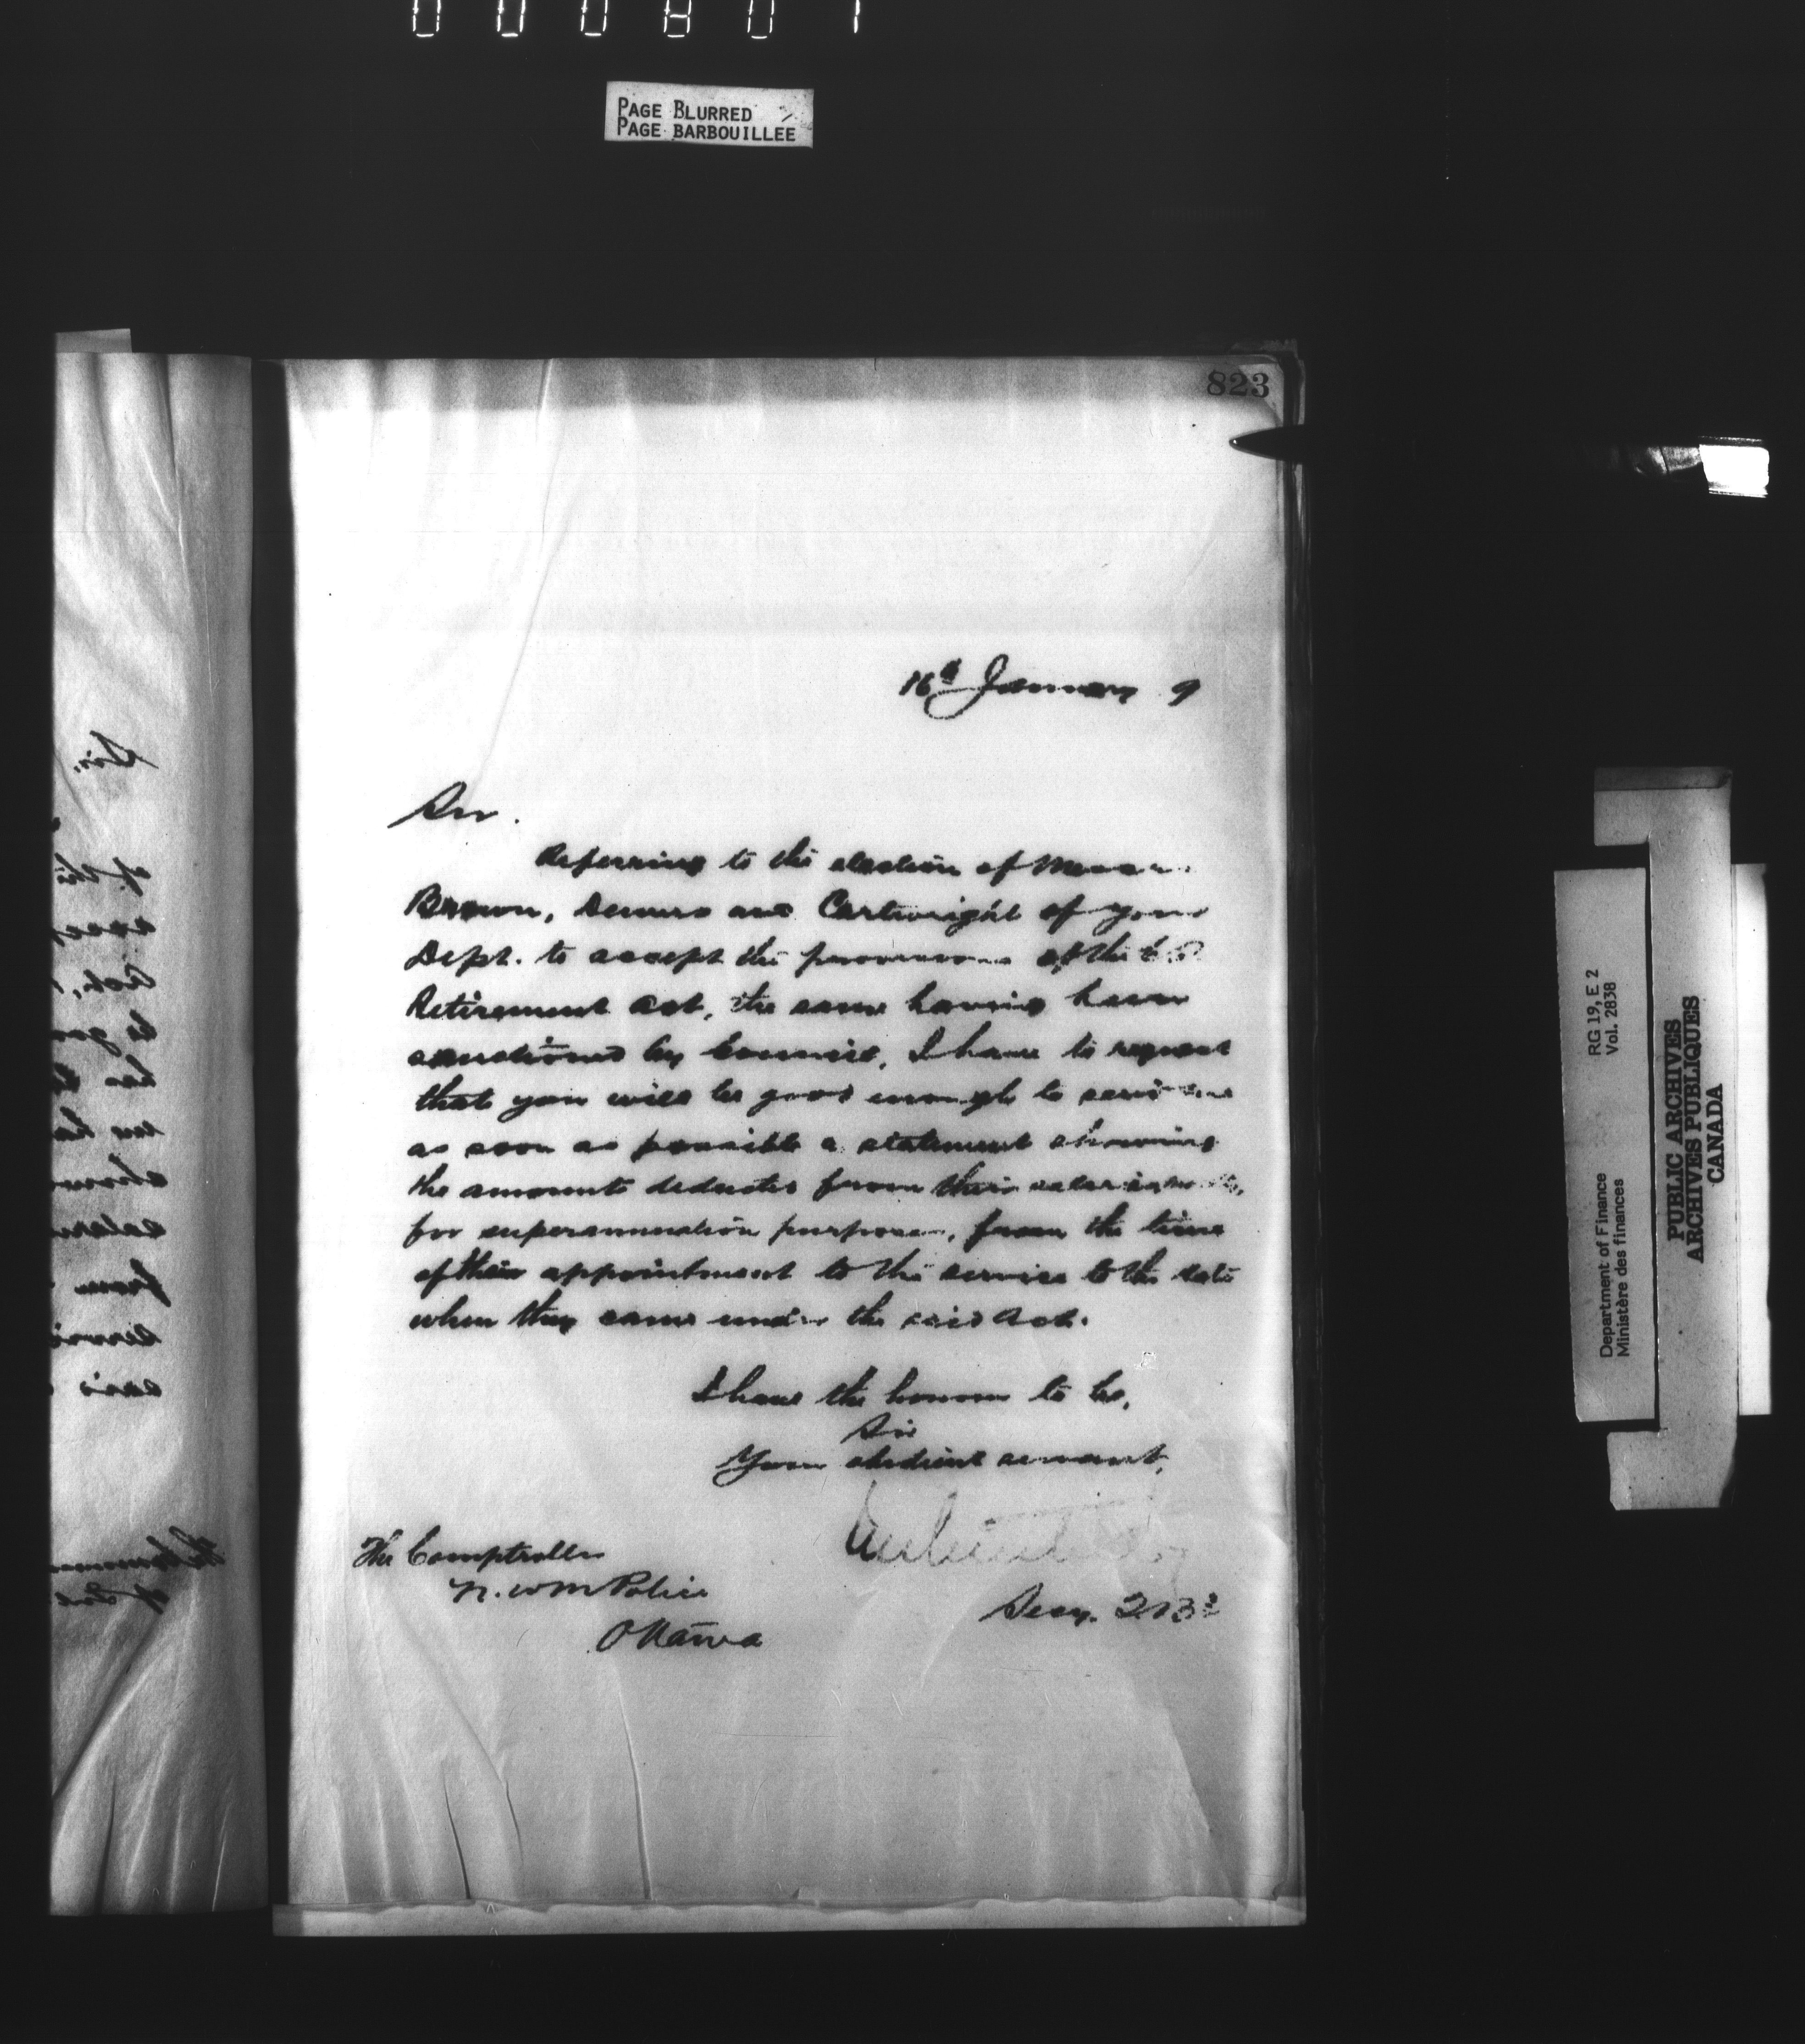 PAGE BLURRED
PAGE BARBOUILLEE
823
16th January 9
Sir.
Referring to the election of Messrs
Brown, Demers and Cartwright of your
Dept. to accept the provisions of the
Retirement Act, the same having been
sanctioned by Council, I have to request
that you will be good enough to send me
as soon as possible a statement showing
the amounts deducted from their salaries
for superannuation purposes, from the time
of their appointment to the service to the date
when they came under the said Act.
I have the honour to be,
Sir
Your obedient servant,
The Comptroller
N. W M Police
Ottawa
Secy.
RG 19, E 2
Vol. 2838
Department of Finance
Ministère des finances
PUBLIC ARCHIVES
ARCHIVES PUBLIQUES
CANADA